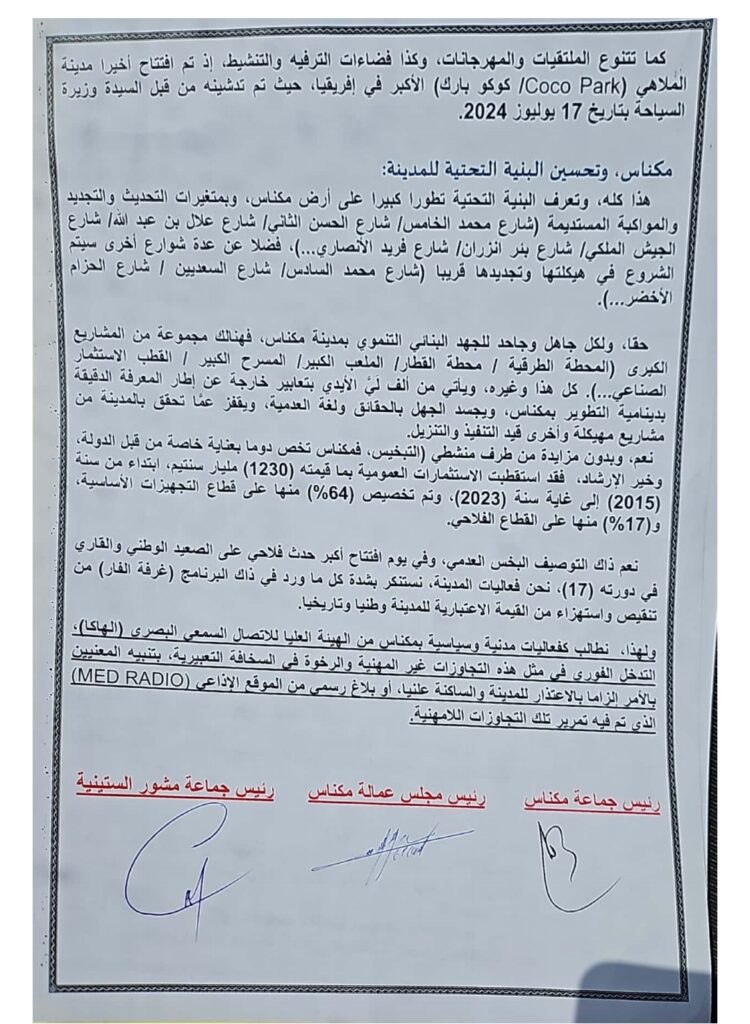 كما تتنوع الملتقيات والمهرجانات، وكذا فضاءات الترفيه والتنشيط، إذ تم افتتاح أخيرا مدينة
الملاهي (Coco Park/ كوكو بارك) الأكبر في إفريقيا، حيث تم تدشينه من قبل السيدة وزيرة
السياحة بتاريخ 17 يوليوز 2024.
مكناس، وتحسين البنية التحتية للمدينة:
هذا كله، وتعرف البنية التحتية تطورا كبيرا على أرض مكناس، وبمتغيرات التحديث والتجديد
والمواكبة المستديمة (شارع محمد الخامس/ شارع الحسن الثاني/ شارع علال بن عبد الله/ شارع
الجيش الملكي/ شارع بئر انزران/ شارع فريد الأنصاري...)، فضلا عن عدة شوارع أخرى سيتم
الشروع في هيكلتها وتجديدها قريبا (شارع محمد السادس/ شارع السعديين / شارع الحزام
الأخضر...).
حقا، ولكل جاهل وجاحد للجهد البنائي التنموي بمدينة مكناس، فهنالك مجموعة من المشاريع
الكبرى (المحطة الطرقية / محطة القطار/ الملعب الكبير/ المسرح الكبير / القطب الاستثمار
الصناعي...). كل هذا وغيره، ويأتي من ألف ليَّ الأيدي بتعابير خارجة عن إطار المعرفة الدقيقة
بدينامية التطوير بمكناس، ويجسد الجهل بالحقائق ولغة العدمية، ويقفز عمَّا تحقق بالمدينة من
مشاريع مهيكلة وأخرى قيد التنفيذ والتنزيل.
نعم، وبدون مزايدة من طرف منشطي (التبخيس، فمكناس تخص دوما بعناية خاصة من قبل الدولة،
وخير الإرشاد، فقد استقطبت الاستثمارات العمومية بما قيمته (1230) مليار سنتيم، ابتداء من سنة
(2015) إلى غاية سنة (2023)، وتم تخصيص (64%) منها على قطاع التجهيزات الأساسية،
و(17%) منها على القطاع الفلاحي.
نعم ذاك التوصيف البخس العدمي، وفي يوم افتتاح أكبر حدث فلاحي على الصعيد الوطني والقاري
في دورته (17)، نحن فعاليات المدينة، نستنكر بشدة كل ما ورد في ذاك البرنامج (غرفة الفار) من
تنقيص واستهزاء من القيمة الاعتبارية للمدينة وطنيا وتاريخيا.
ولهذا، نطالب كفعاليات مدنية وسياسية بمكناس من الهيئة العليا للاتصال السمعي البصري (الهاكا)،
التدخل الفوري في مثل هذه التجاوزات غير المهنية والرخوة في السخافة التعبيرية، بتنبيه المعنيين
بالأمر إلزاما بالاعتذار للمدينة والساكنة علنيا، أو بلاغ رسمي من الموقع الإذاعي (MED RADIO)
الذي تم فيه تمرير تلك التجاوزات اللامهنية.
رئيس جماعة مكناس رئيس مجلس عمالة مكناس رئيس جماعة مشور الستينية